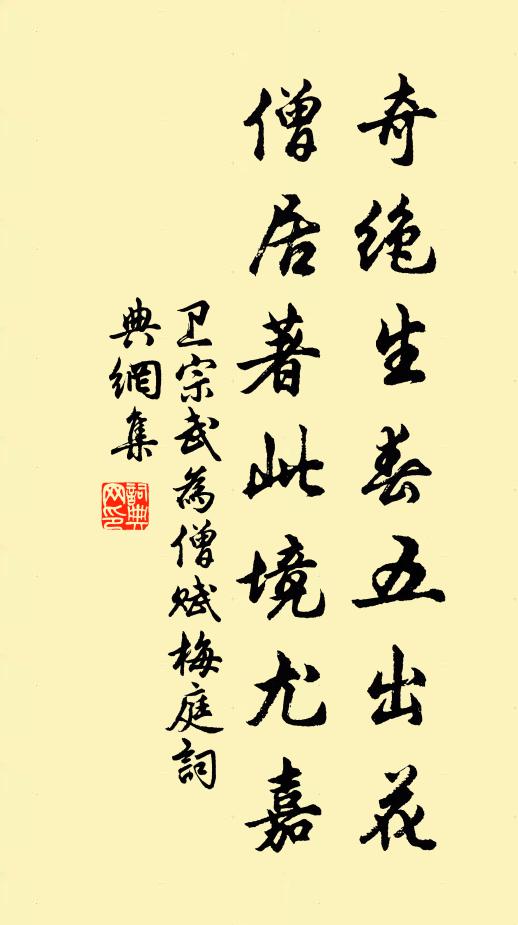 奇绝生春五出花
僧居著此境尤嘉
卫宗武為僧赋梅庭詞
典網集
詞典
网印